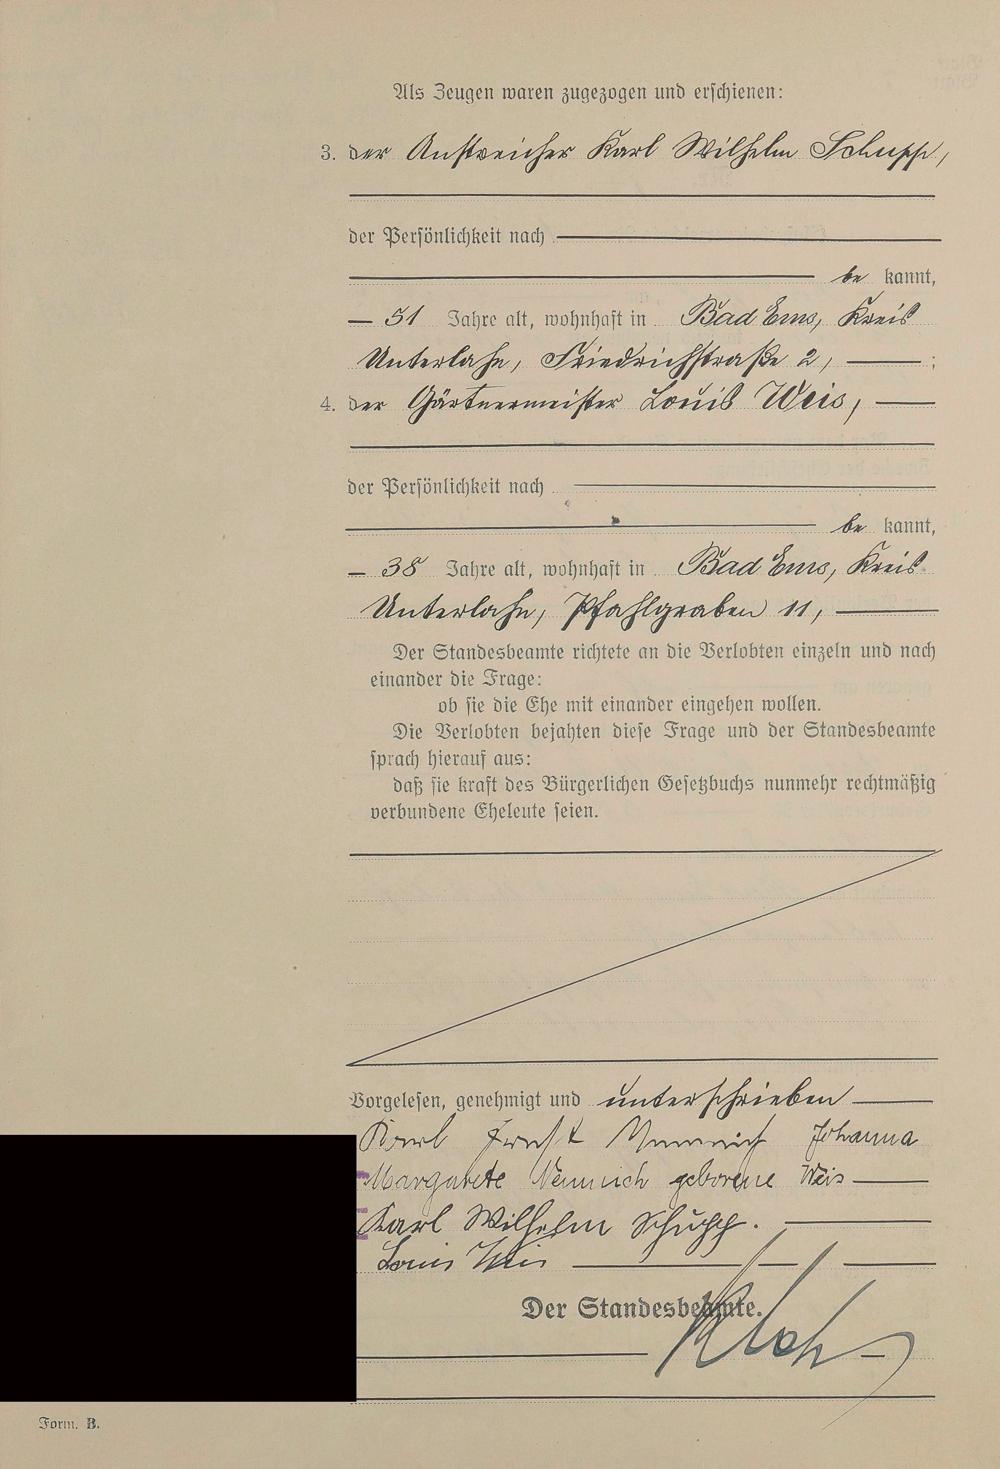 Als Zeugen waren zugezogen und erschienen:
3. der Anstreicher Karl Wilhelm Schupp,
der Persönlichkeit nach
be kannt,
51 Jahre alt, wohnhaft in Bad Ems, Kreis
Unterlahn, Friedrichstraße 2, ;
4. der Gärtnermeister Louis Weis,
der Persönlichkeit nach
be kannt,
38 Jahre alt, wohnhaft in Bad Ems, Kreis
Unterlahn, Pfahlgraben 11,
Der Standesbeamte richtete an die Verlobten einzeln und nach
einander die Frage:
ob sie die Ehe mit einander eingehen wollen.
Die Verlobten bejahten diese Frage und der Standesbeamte
sprach hierauf aus:
daß sie kraft des Bürgerlichen Gesetzbuchs nunmehr rechtmäßig
verbundene Eheleute seien.
Vorgelesen, genehmigt und unterschrieben
Karl Ernst Johanna
Margarete geborene Weis
Karl Wilhelm Schupp.
Louis Weis
Der Standesbeamte.
Form. B.